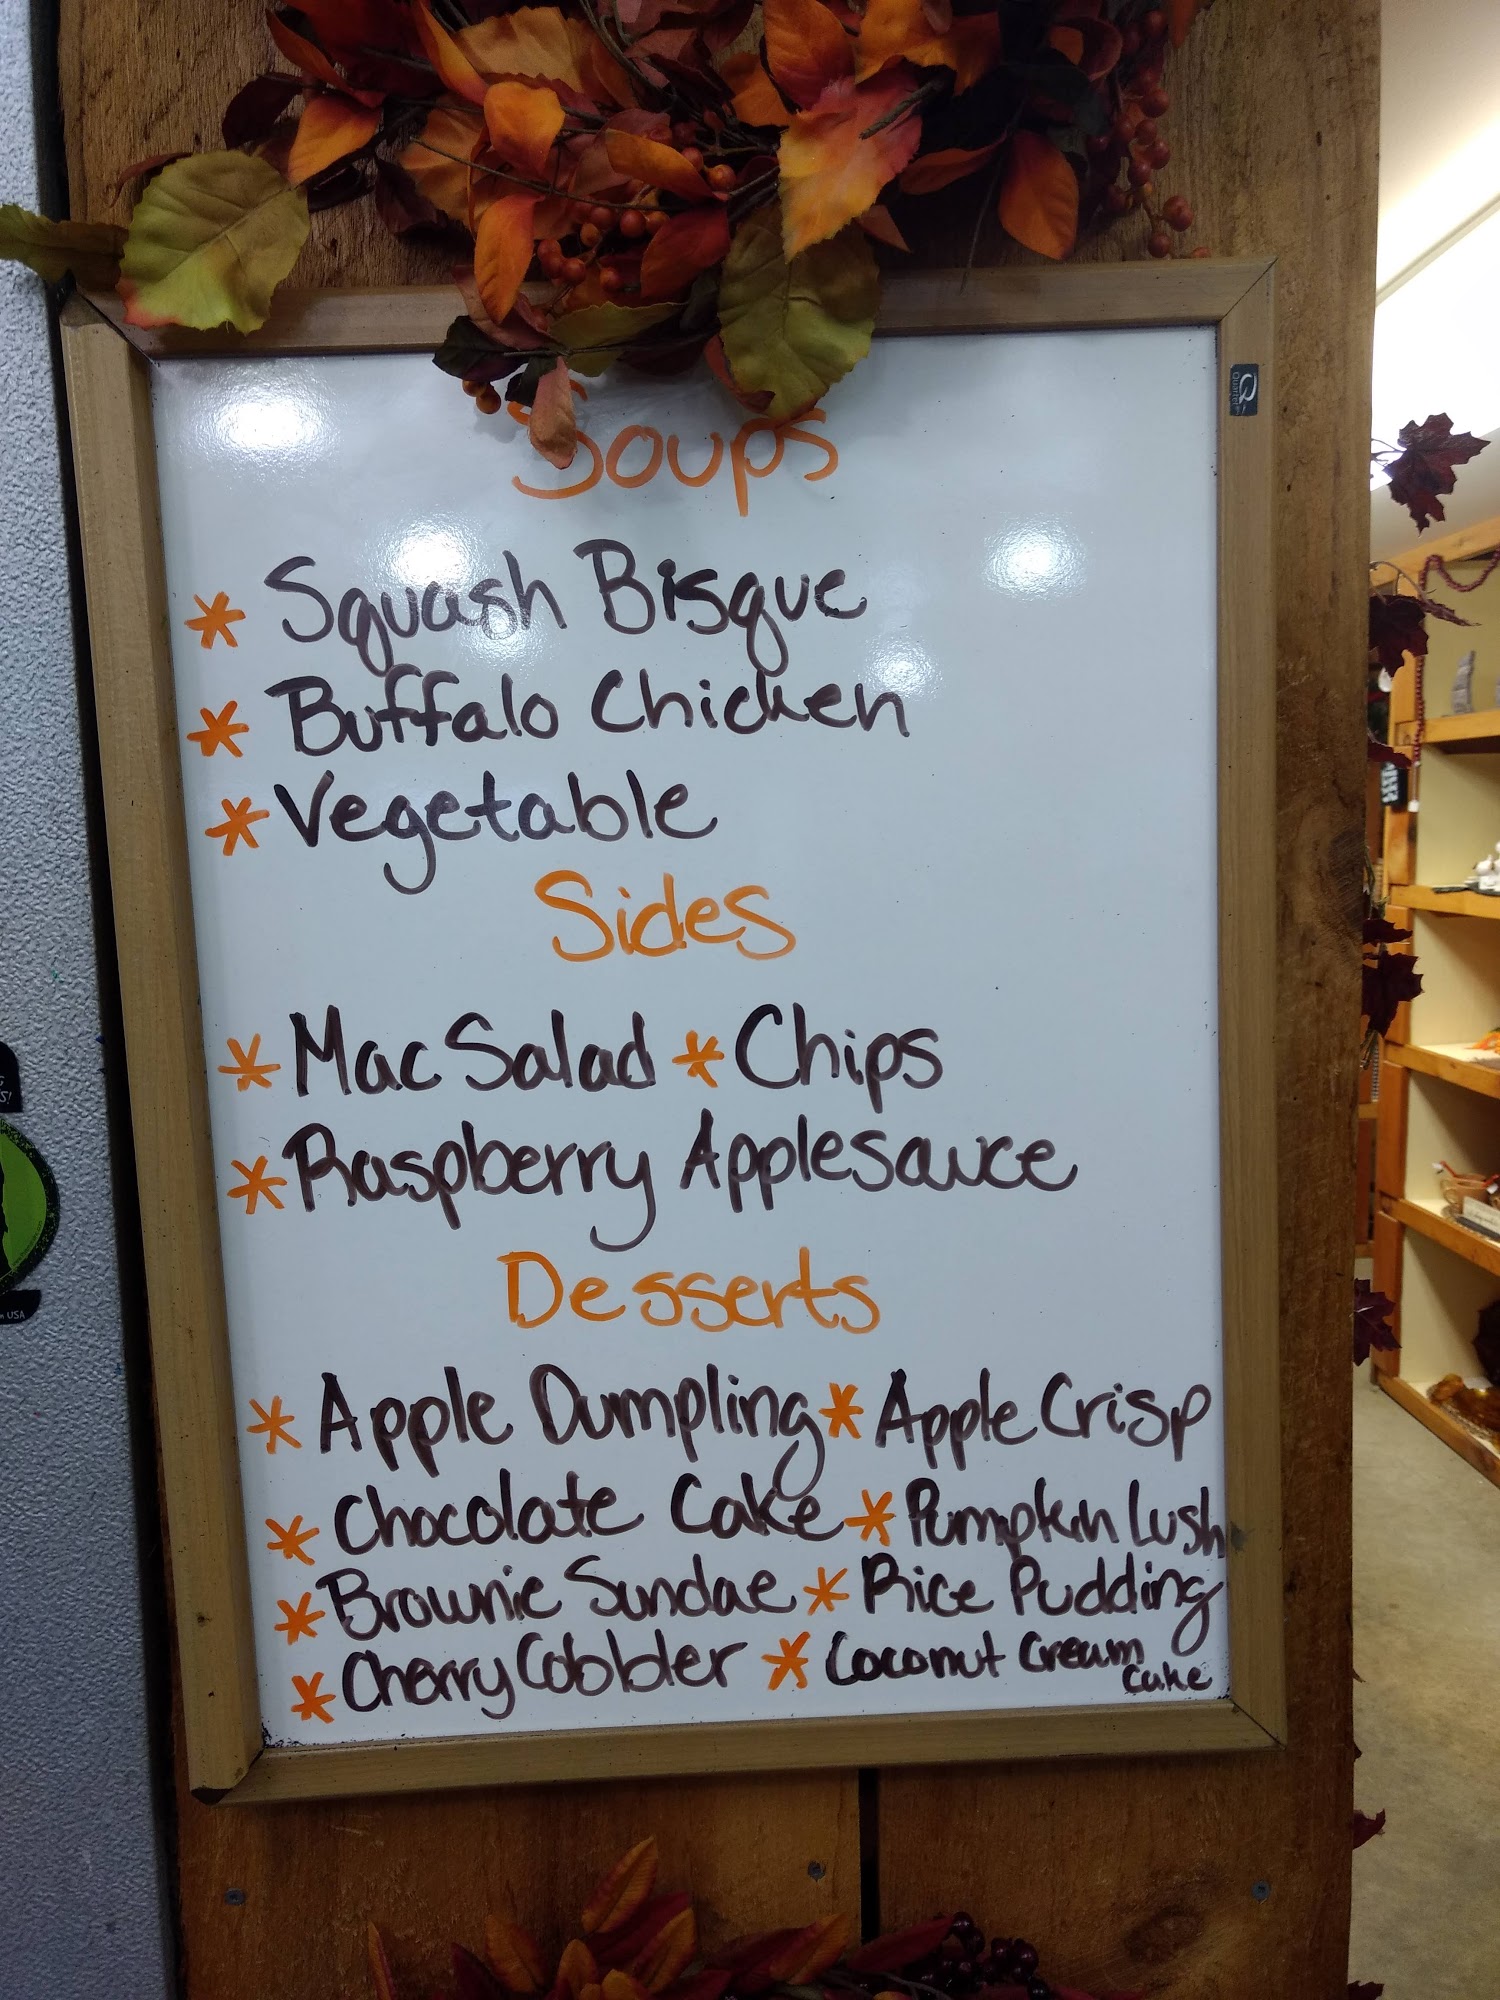 Soups
* Squash Bisque
* Buffalo Chicken
* Vegetable
Sides
* Mac Salad * Chips
* Raspberry Applesauce
Desserts
* Apple Dumpling * Apple Crisp
* Chocolate Cake * Pumpkin Lush
* Brownie Sundae * Rice Pudding
* Cherry Cobbler * Coconut Cream
Cake
Q
Quartet
S!
USA